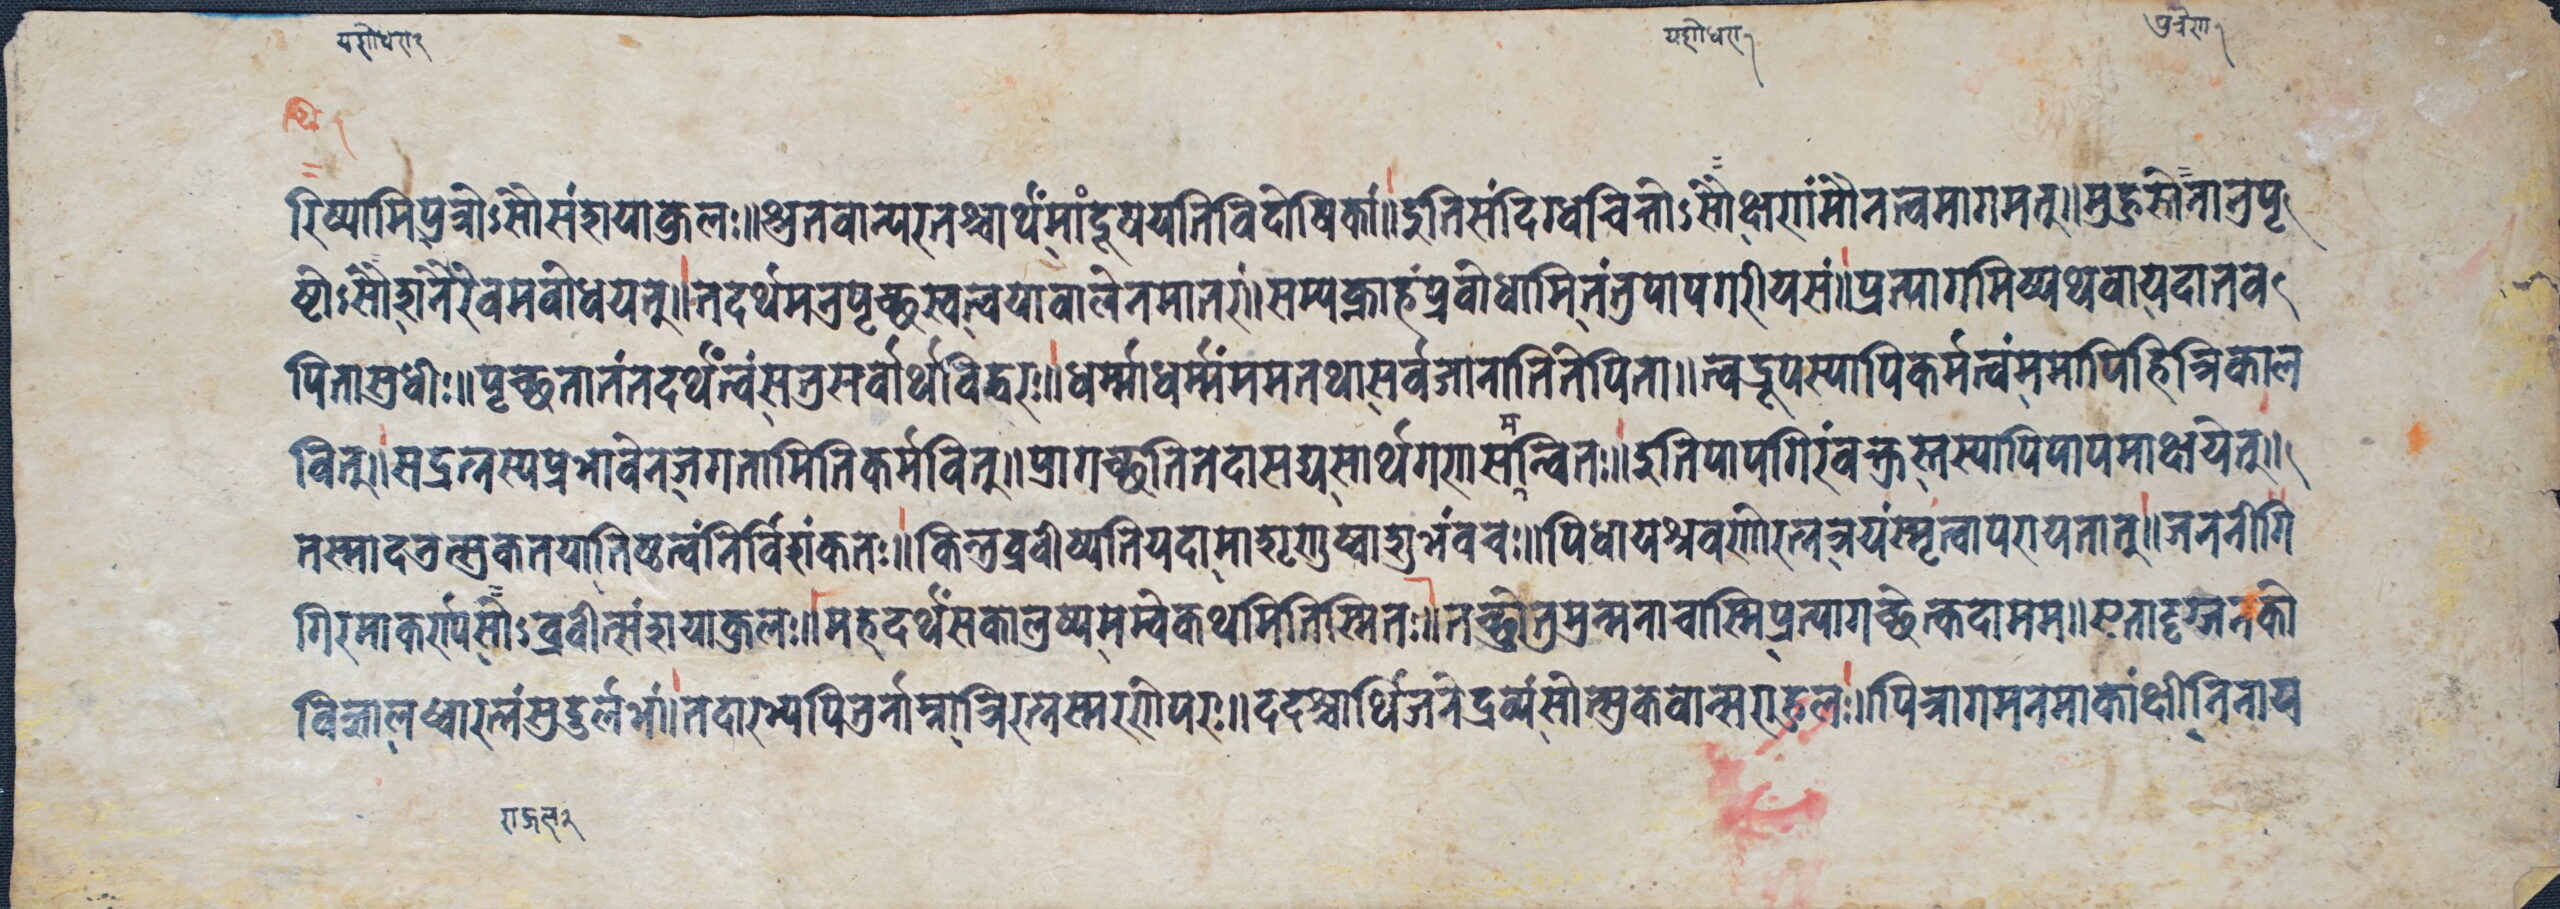 यशोधरा१ यशोधरा१ पुत्रेण१
रिष्यामिपुत्रोऽसौसंशयाकुलः॥श्रुतवान्परतश्चार्थंमांदूषयतिविदोषिकां॥इतिसंदिग्धचित्तोऽसौक्षणंमौनत्वमागमत्॥मुहुस्तेनानुपृ
ष्टोऽसौशनैरेवमवोधयत्॥तदर्थमनुपृच्छस्वत्वयावालेनमातरं॥सम्यक्नाहंप्रवोधामितंतुपापगरीयसं॥प्रत्यागमिष्यथवायदातव
पितासुधीः॥पृच्छतातंतदर्थंत्वंसतुसर्वार्थविद्वरः॥धर्म्माधर्म्मंममतथासर्वजानातितेपिता॥त्वद्रूपस्यापिकर्मत्वंममापिहित्रिकाल
वित्॥सद्रत्नस्यप्रभावेनजगतामितिकर्मवित्॥प्रागच्छतितदासद्यसार्थगणसमन्वितः॥इतिपापगिरंवक्त्रस्तस्यापिपापमाक्षयेत्॥
तस्मादनुत्सुकतयातिष्ठत्वंनिर्विशंकतः॥किन्तुब्रवीष्यतियदामाशृणुष्वाशुभंवचः॥पिधायश्रवणौरत्नत्रयंस्मृत्वापरायतात्॥जननीगि
गिरमाकर्ण्यसोऽब्रवीत्संशयाकुलः॥महदर्थंसकालुष्यमम्वेकथमितिस्मितः॥तच्छ्रोतुमुन्मनाचास्मिप्रत्यागच्छेत्कदामम॥एतादृग्जनको
विद्वाल्लध्वारत्नंसुदुर्लभां॥तदारभ्यपितुर्नाम्नात्रिरत्नस्मरणेपरः॥ददश्चार्थिजनेद्रव्यंसोत्सुकवान्सराहुलः॥पित्रागमनमाकांक्षीनिनाय
राहुल२